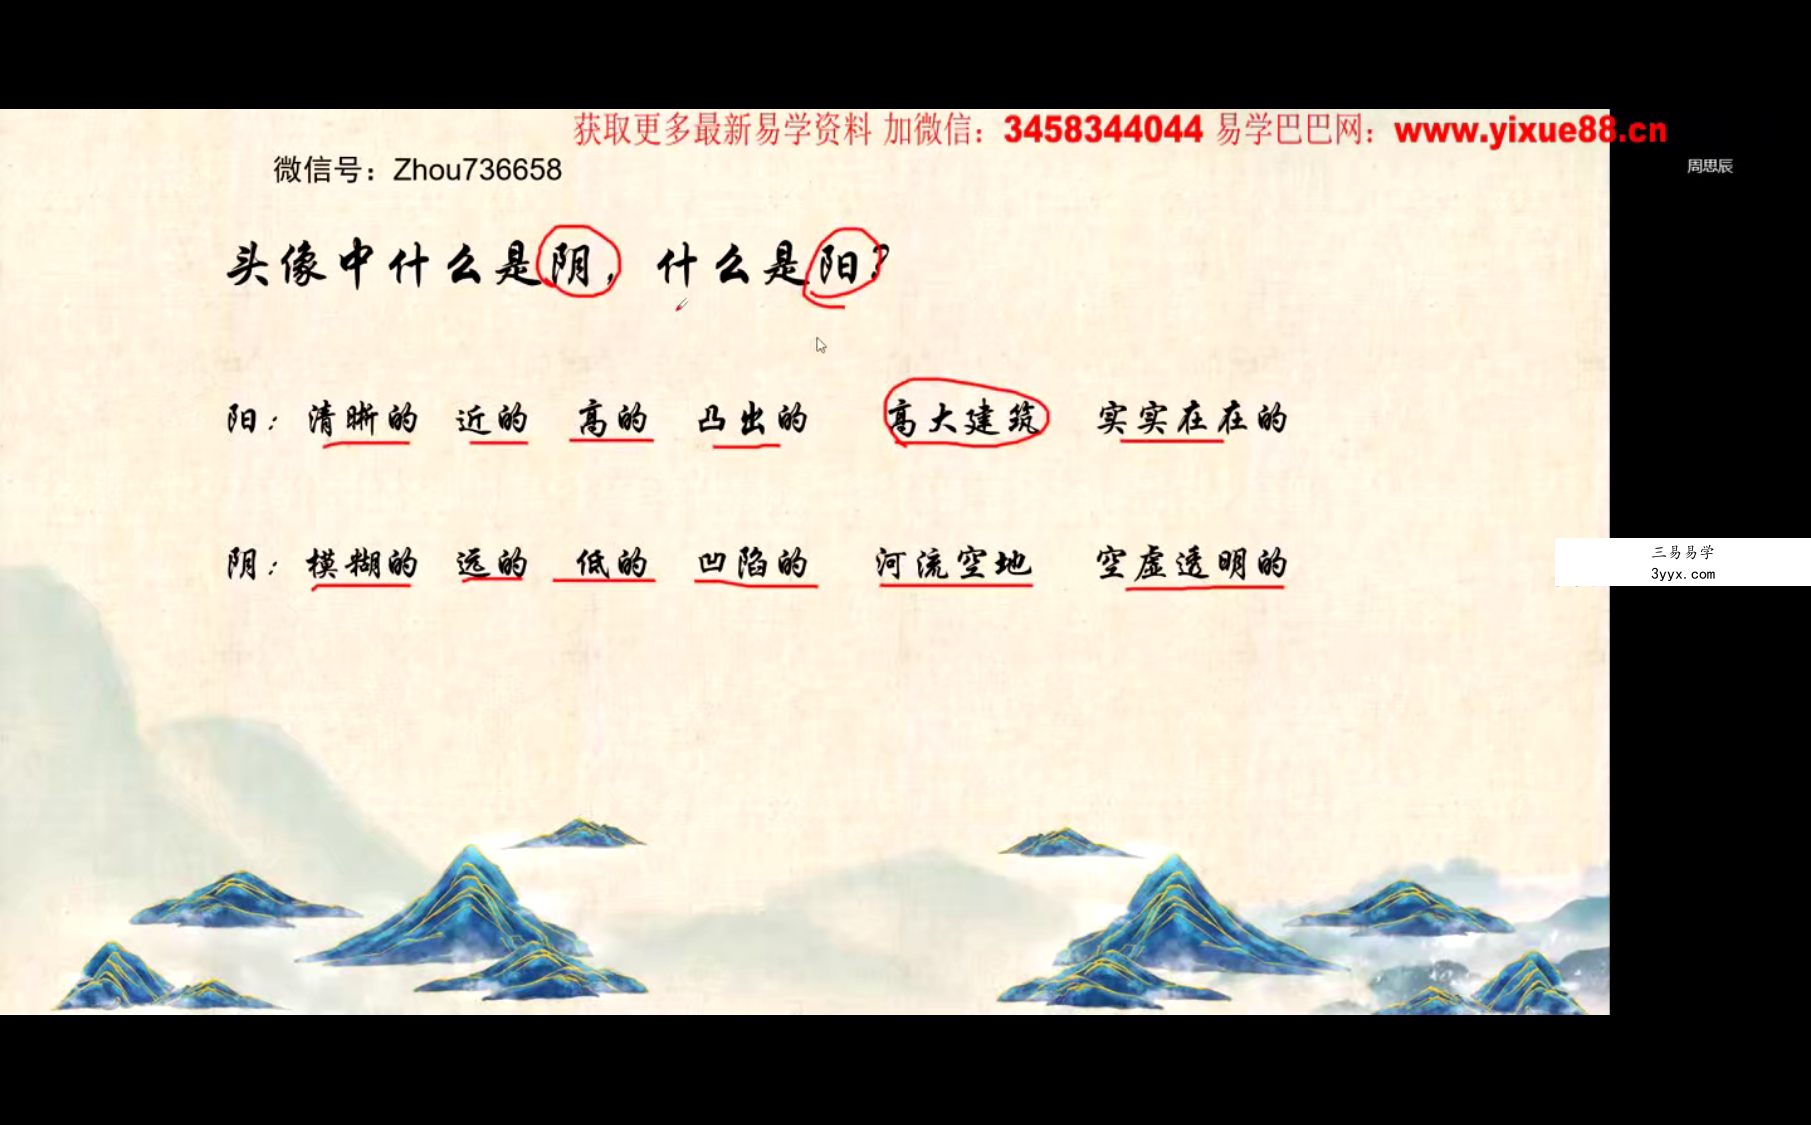 获取更多最新易学资料 加微信：3458344044 易学巴巴网：www.yixue88.cn
微信号：Zhou736658
周思辰
头像中什么是阴，什么是阳？
阳：清晰的 近的 高的 凸出的 高大建筑 实实在在的
阴：模糊的 远的 低的 凹陷的 河流空地 空虚透明的
三易易学
3yyx.com